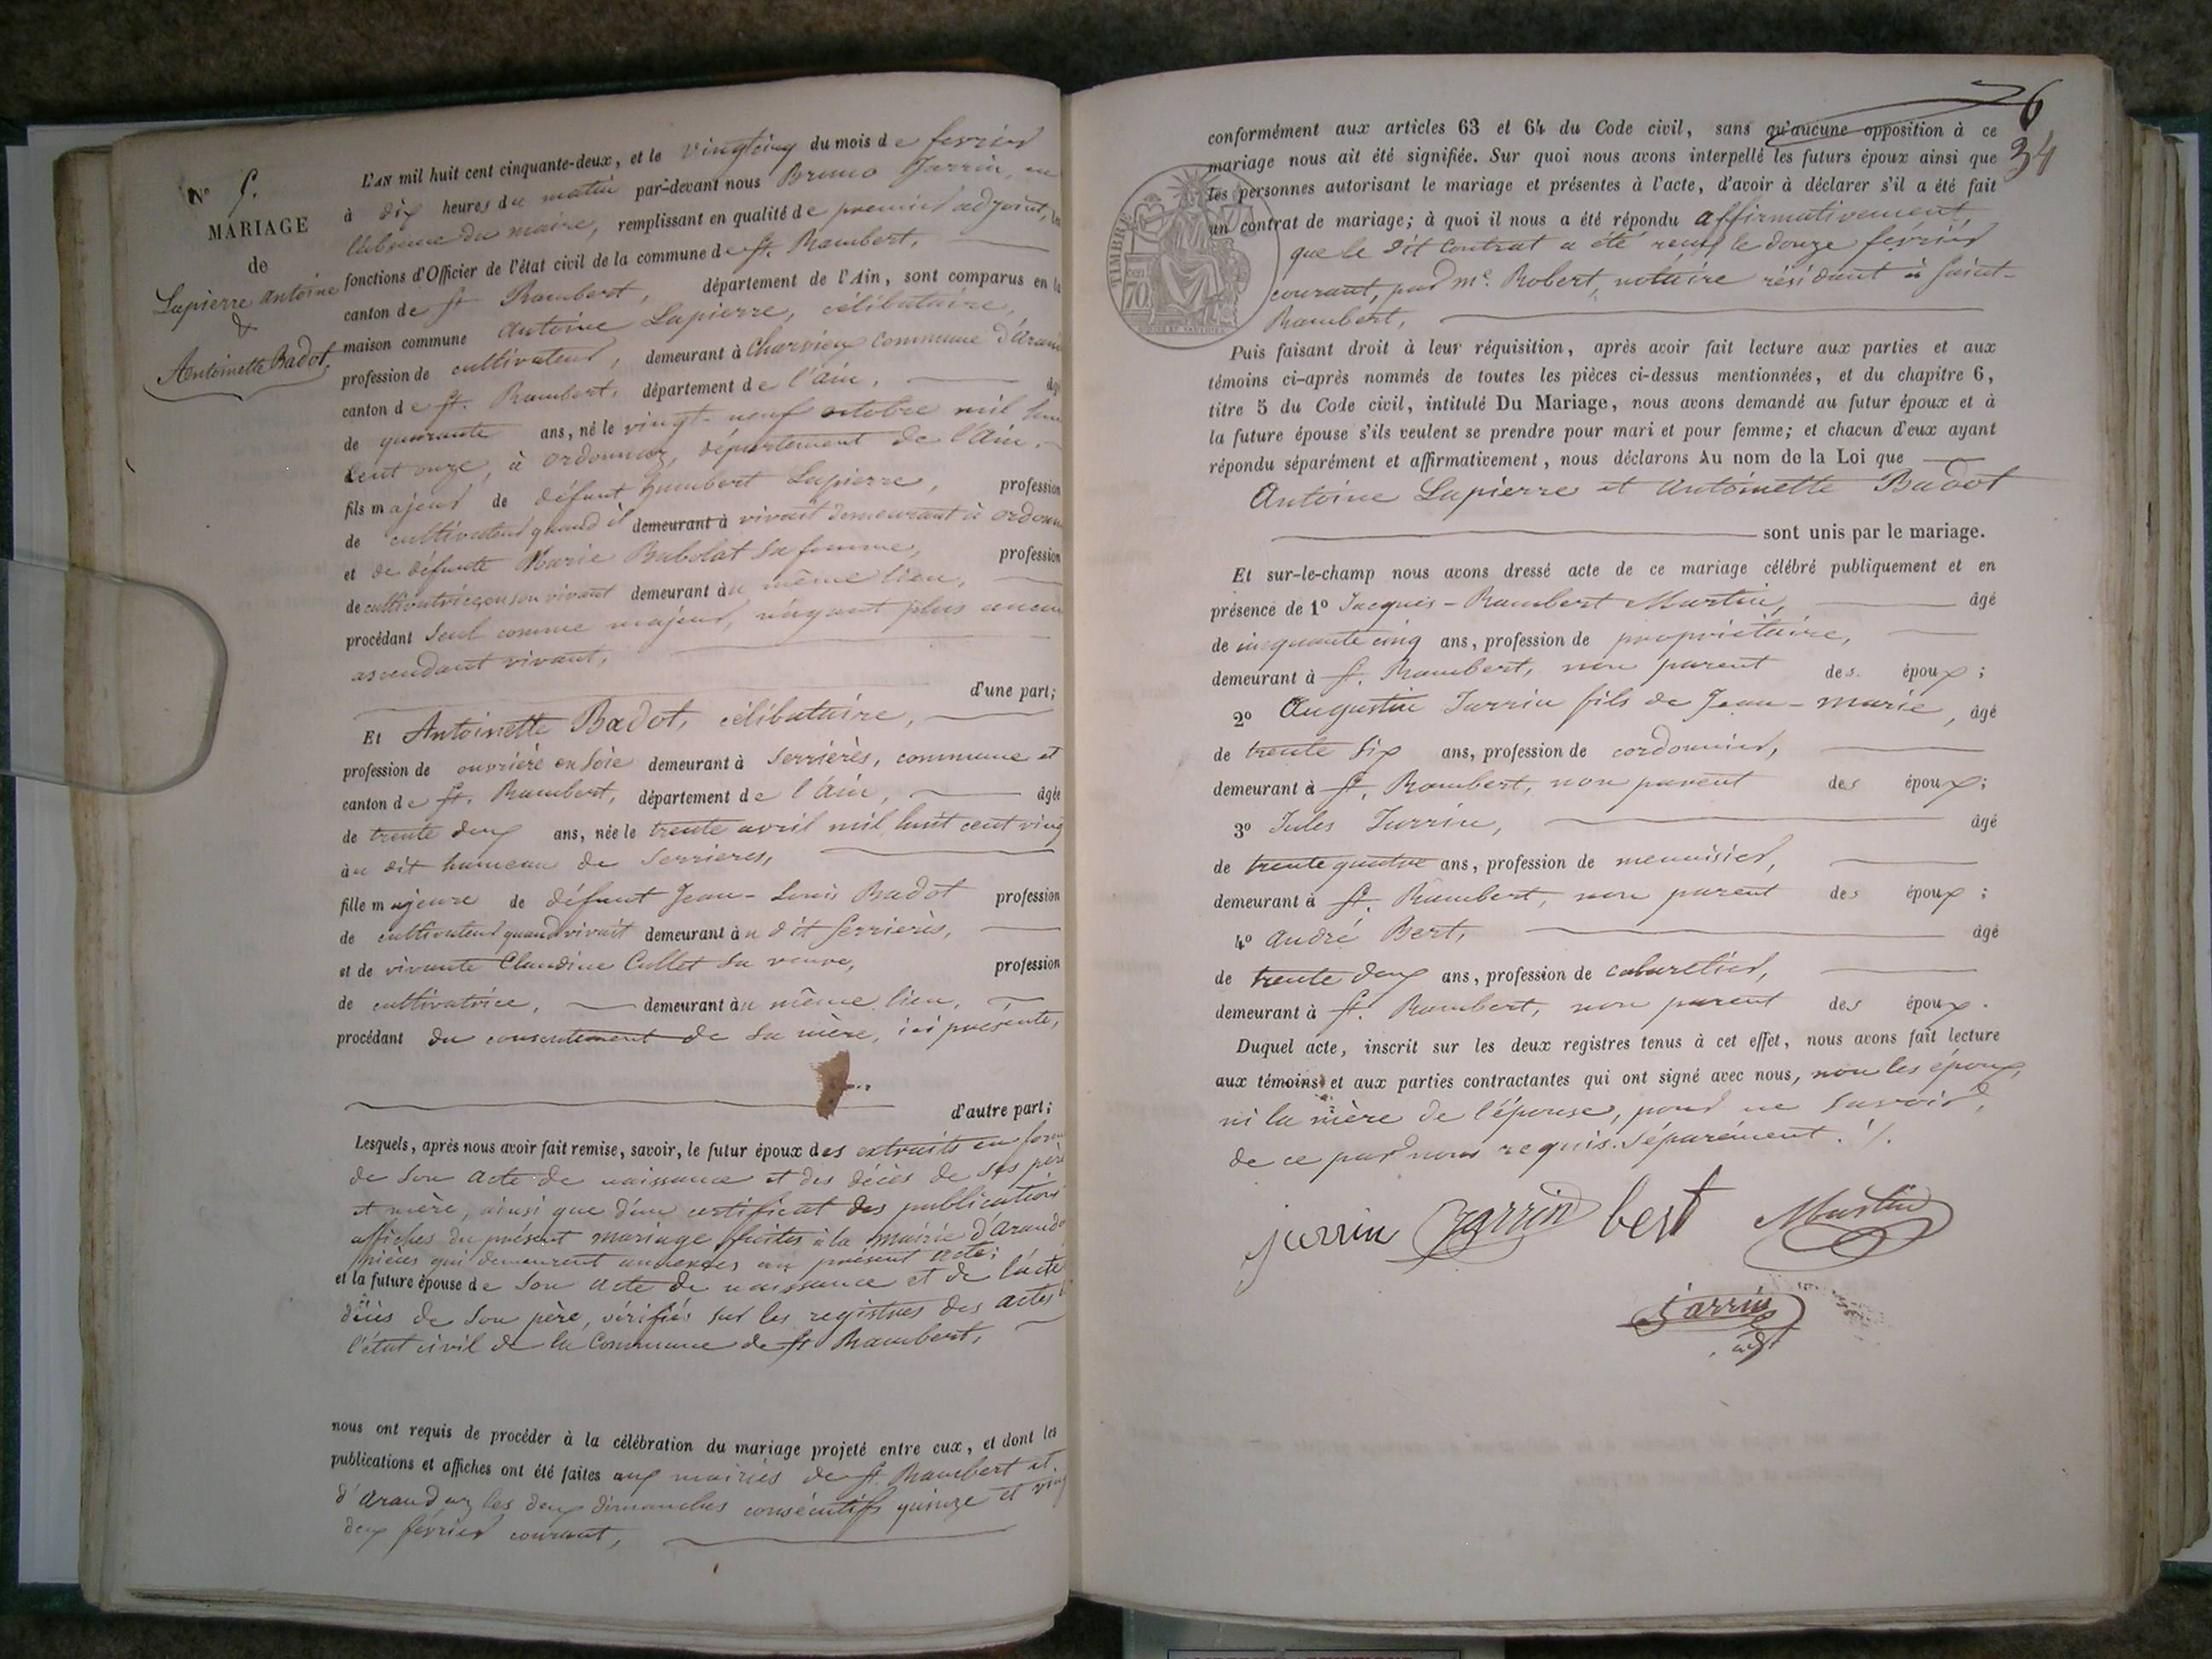 N° 5.
MARIAGE
de
Lapierre Antoine
&
Antoinette Badot.
L'AN mil huit cent cinquante-deux, et le vingtcinq du mois de fevrier
à dix heures du matin par-devant nous Bruno Jarrin, en
l'absence du maire, remplissant en qualité de premier adjoint, les
fonctions d'Officier de l'état civil de la commune de St. Rambert,
canton de St Rambert, département de l'Ain, sont comparus en la
maison commune Antoine Lapierre, célibataire,
profession de cultivateur, demeurant à Charvieux commune d'Arand
canton de St. Rambert, département de l'ain, âgé
de quarante ans, né le vingt-neuf octobre mil huit
cent onze, à ordonnaz, département de l'Ain,
fils majeur de défunt humbert Lapierre, profession
de cultivateur quand il demeurant à vivait demeurant à ordonn
et de défunte Marie Babolat sa femme, profession
de cultivatrice, en son vivant demeurant au même lieu,
procédant seul comme majeur, n'ayant plus aucun
ascendant vivant,
d'une part;
Et Antoinette Badot, célibataire,
profession de ouvrière en soie demeurant à Serrières, commune et
canton de St. Rambert, département de l'Ain, âgée
de trente deux ans, née le trente avril mil huit cent ving
au dit hameau de Serrieres,
fille majeure de défunt Jean-Louis Badot profession
de cultivateur quand vivait demeurant au dit Serrières,
et de vivante Claudine Cullet sa veuve, profession
de cultivatrice, demeurant au même lieu,
procédant du consentement de sa mère, ici présente,
d'autre part;
Lesquels, après nous avoir fait remise, savoir, le futur époux des extraits en form
de son acte de naissance et des décès de ses père
et mère, ainsi que d'un certificat des publications
affiches du présent mariage faites à la mairie d'Arand
pièces qui demeurent annexées au présent acte;
et la future épouse de son acte de naissance et de l'acte
décès de son père, vérifiés sur les registres des actes
l'état civil de la Commune de St Rambert,
nous ont requis de procéder à la célébration du mariage projeté entre eux, et dont les
publications et affiches ont été faites aux mairies de St. Rambert et
d'Arandaz les deux dimanches consécutifs quinze et ving
deux février courant,
6
34
conformément aux articles 63 et 64 du Code civil, sans qu'aucune opposition à ce
mariage nous ait été signifiée. Sur quoi nous avons interpellé les futurs époux ainsi que
les personnes autorisant le mariage et présentes à l'acte, d'avoir à déclarer s'il a été fait
un contrat de mariage; à quoi il nous a été répondu affirmativement,
que le dit contrat a été reçu le douze février
courant, par me. Robert, notaire résidant à Saint-
Rambert,
TIMBRE
70
Puis faisant droit à leur réquisition, après avoir fait lecture aux parties et aux
témoins ci-après nommés de toutes les pièces ci-dessus mentionnées, et du chapitre 6,
titre 5 du Code civil, intitulé Du Mariage, nous avons demandé au futur époux et à
la future épouse s'ils veulent se prendre pour mari et pour femme; et chacun d'eux ayant
répondu séparément et affirmativement, nous déclarons Au nom de la Loi que
Antoine Lapierre et Antoinette Badot
sont unis par le mariage.
Et sur-le-champ nous avons dressé acte de ce mariage célébré publiquement et en
présence de 1° Jacques-Rambert Martin, âgé
de cinquante cinq ans, profession de propriétaire,
demeurant à St. Rambert, non parent des époux;
2° Augustin Jarrin fils de Jean-marie, âgé
de trente six ans, profession de cordonnier,
demeurant à St. Rambert, non parent des époux;
3° Jules Jarrin, âgé
de trente quatre ans, profession de menuisier,
demeurant à St. Rambert, non parent des époux;
4° André Bert, âgé
de trente deux ans, profession de cabaretier,
demeurant à St. Rambert, non parent des époux.
Duquel acte, inscrit sur les deux registres tenus à cet effet, nous avons fait lecture
aux témoins et aux parties contractantes qui ont signé avec nous, non les époux,
ni la mère de l'épouse, pour ne savoir,
de ce par nous requis. Séparément. /.
jarrin Jarrin best Martin
Jarrin
adjt